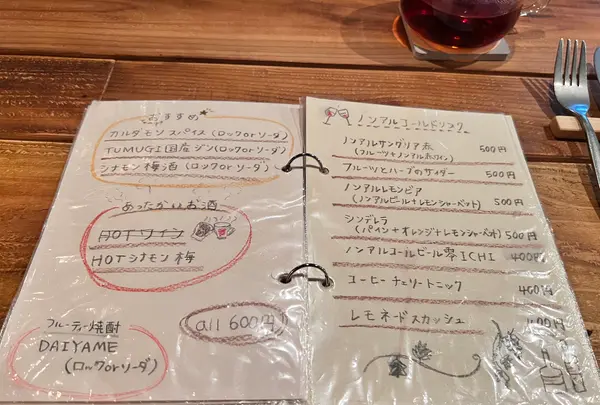 おすすめ
カルダモンスパイス(ロックorソーダ)
TUMUGI国産ジン(ロックorソーダ)
シナモン梅酒(ロックorソーダ)
あったかいお酒
HOTワイン
HOTシナモン梅
all 600円
フルーティー焼酎
DAIYAME
(ロックorソーダ)
ノンアルコールドリンク
ノンアルサングリア赤 500円
(フルーツとノンアル赤ワイン)
フルーツとハーブのサイダー 500円
ノンアルレモンビア
(ノンアルビール+レモンシャーベット) 500円
シンデレラ
(パイン+オレンジ+レモンシャーベット) 500円
ノンアルコールビール零ICHI 400円
コーヒーチェリートニック 400円
レモネードスカッシュ 400円